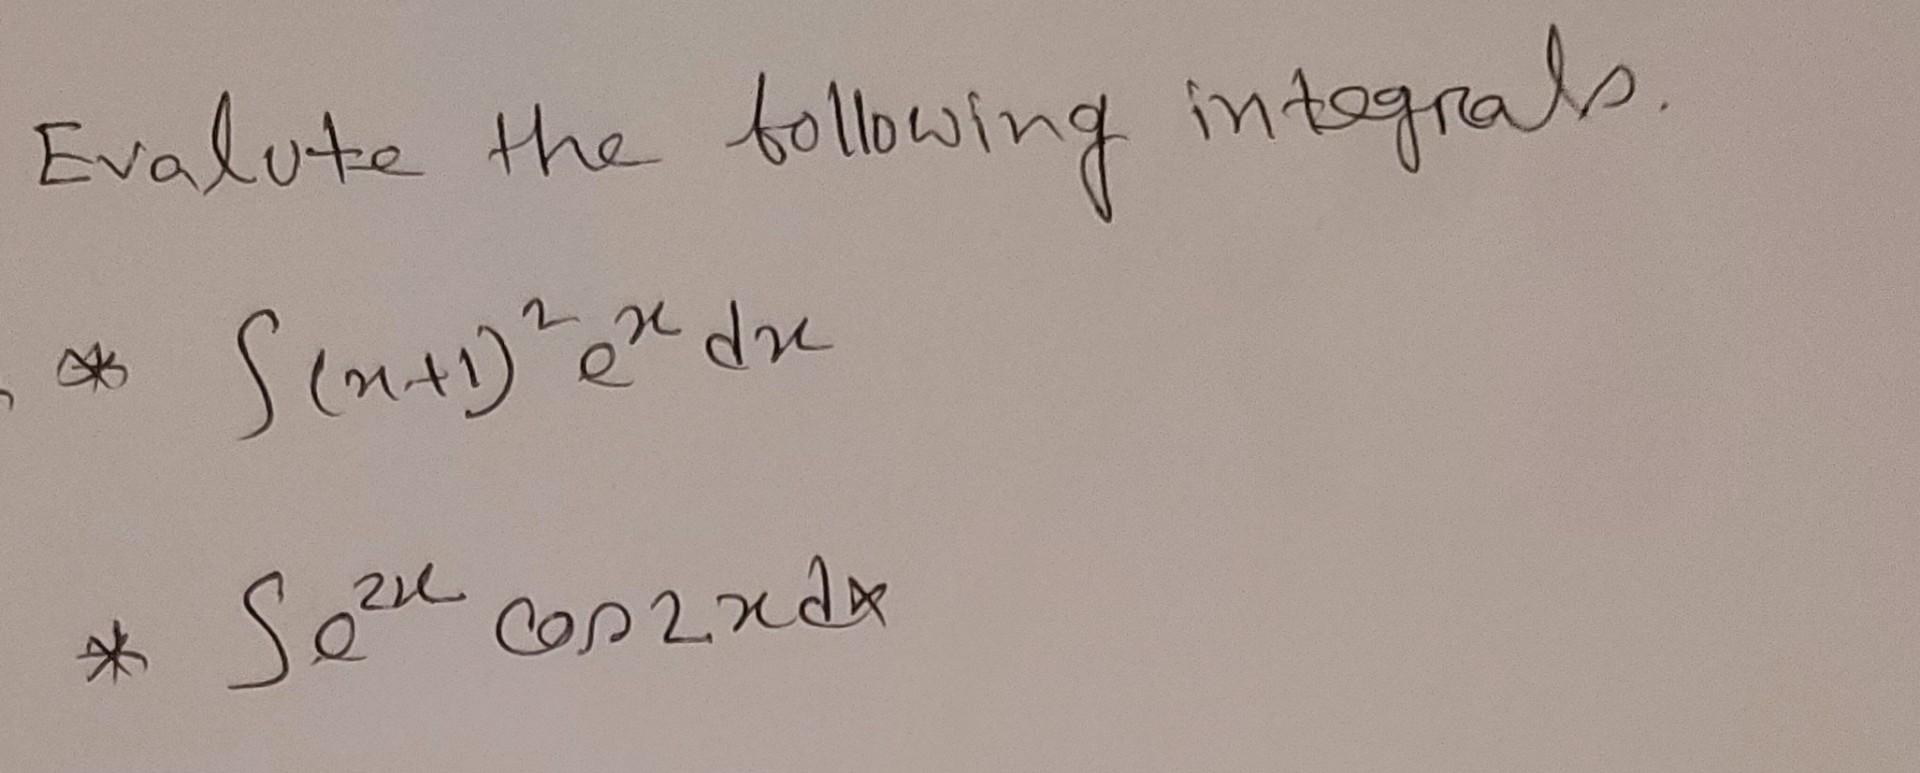 Evalute the following integrals.
* ∫(x+1)² eˣ dx
* ∫e²ˣ cos2xdx